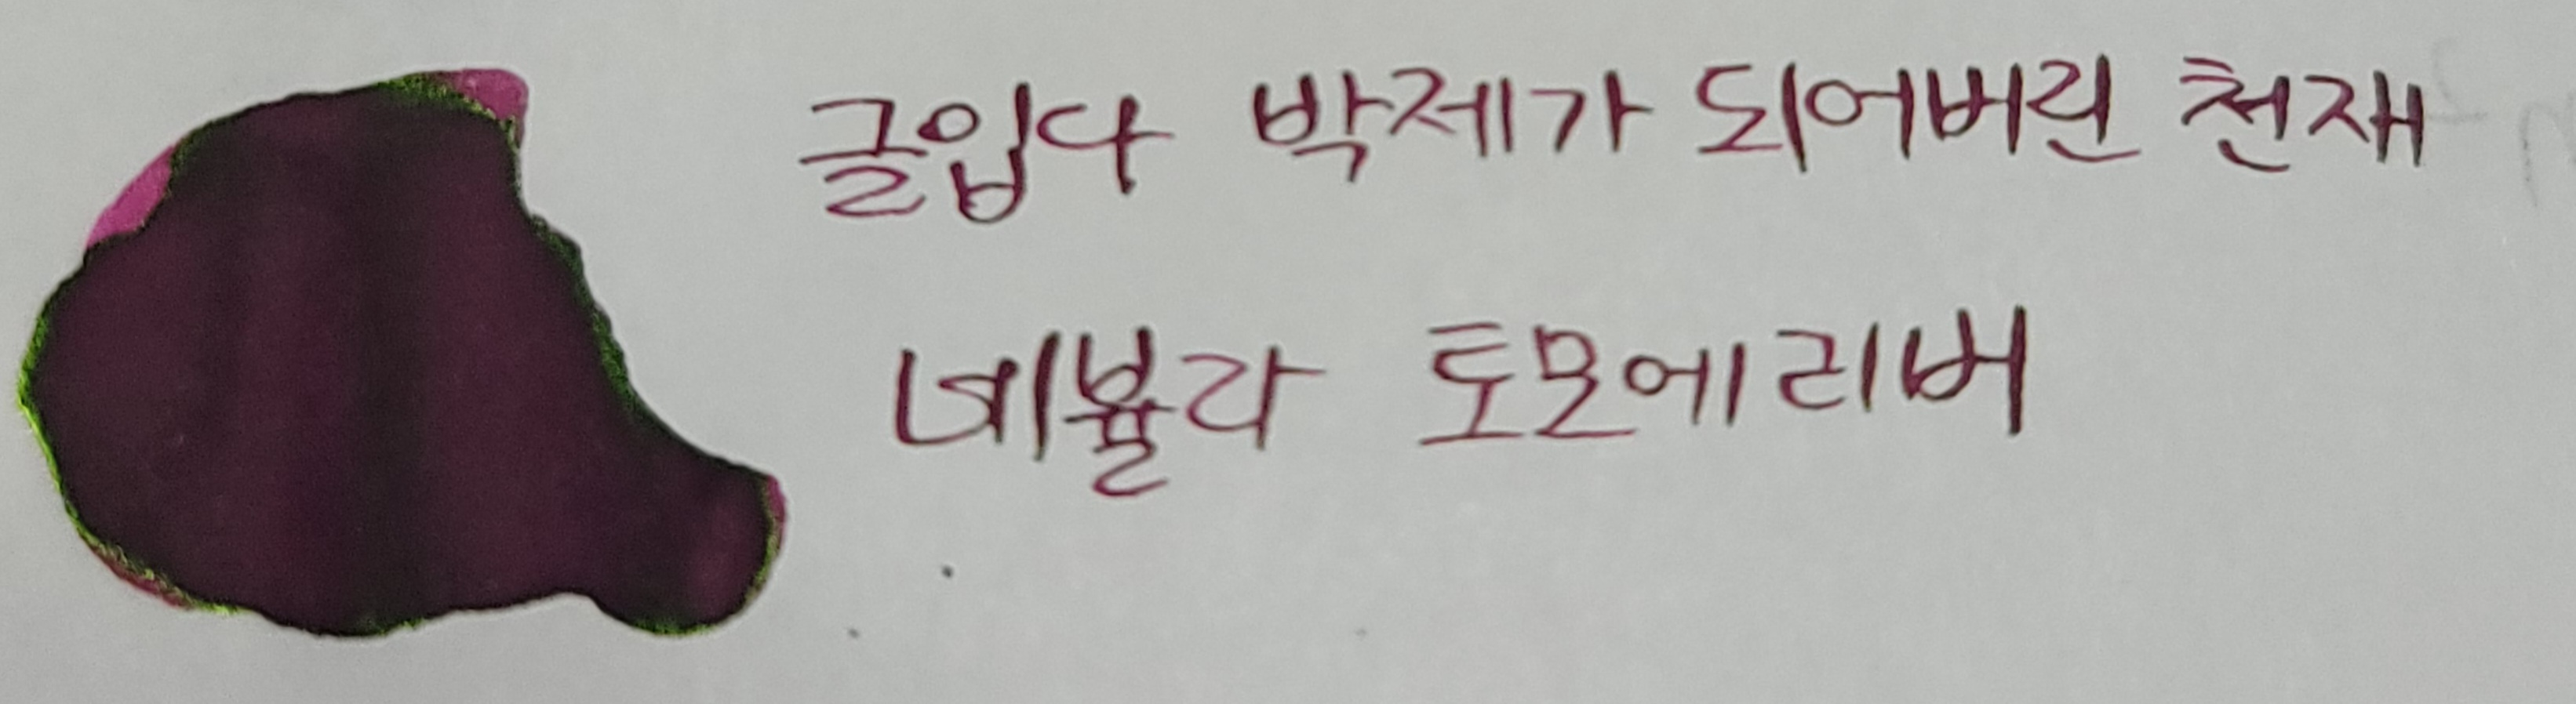 글입다 박제가 되어버린 천재
네뷸라 토모에리버